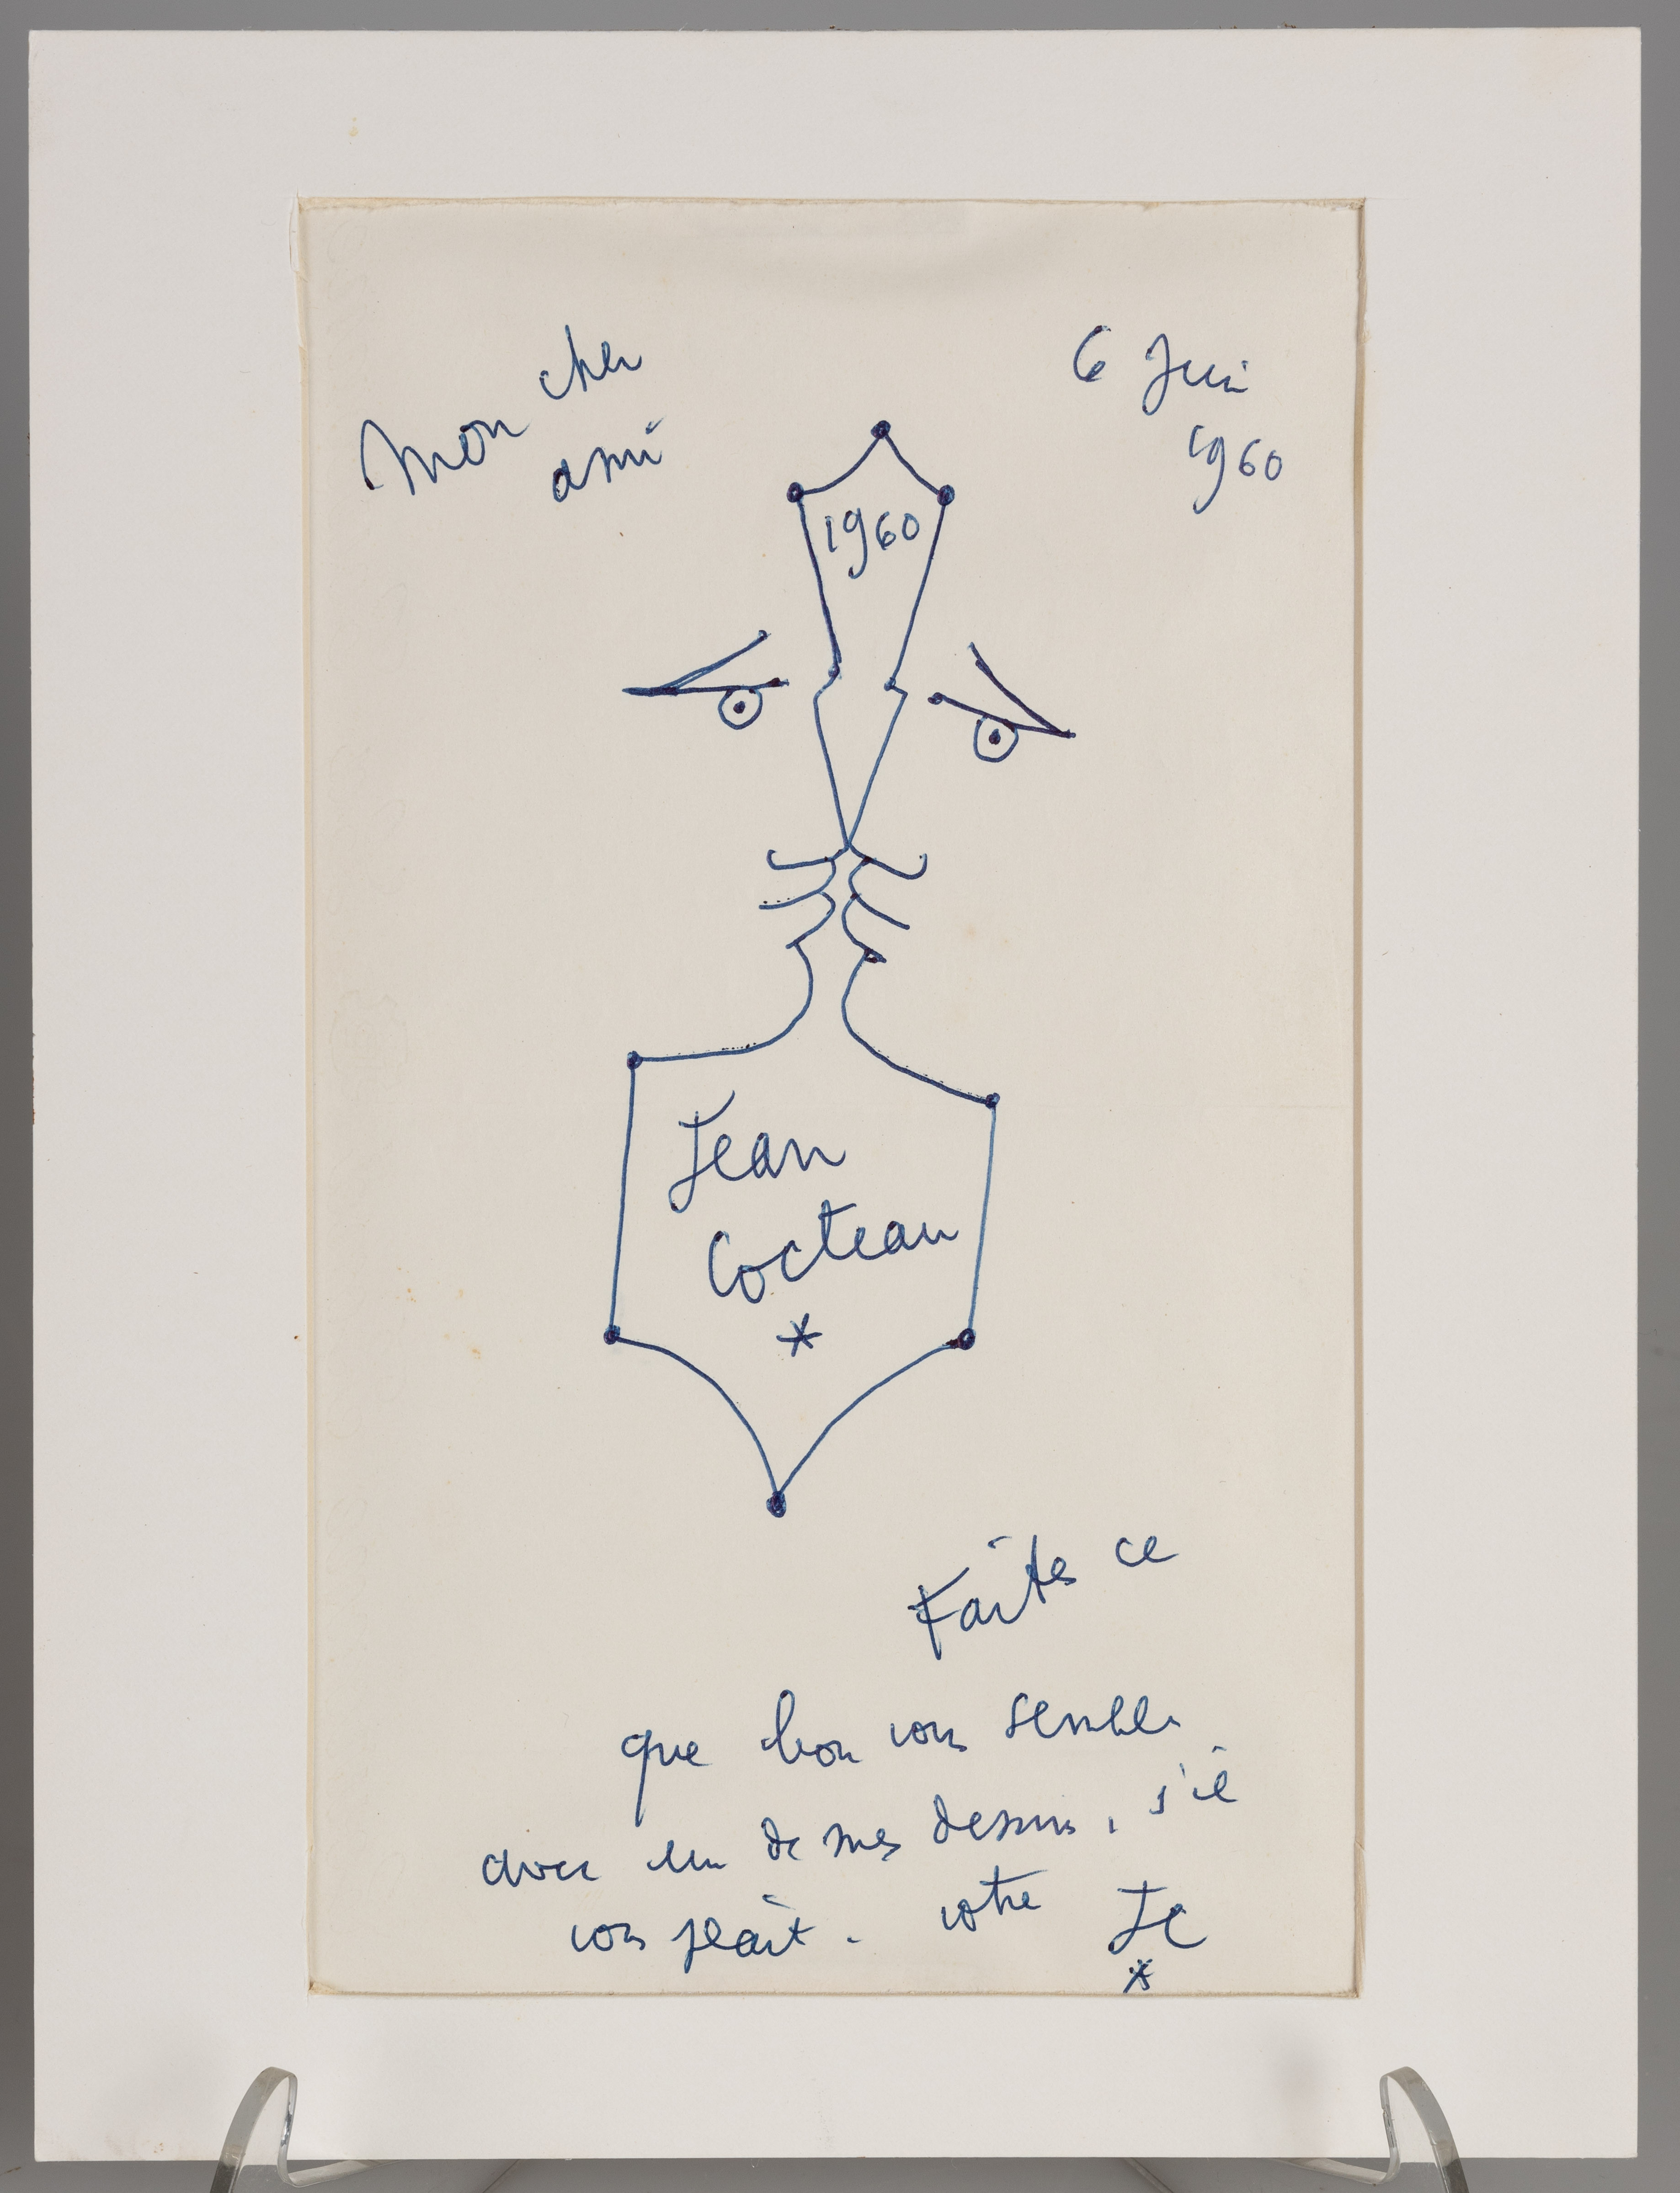 cher
Mon
ami
6 Juin
1960
1960
Jean
Cocteau
*
Faites ce
que bon vous semble
avec un de mes dessins, s'il
vous plaît. votre JC
*